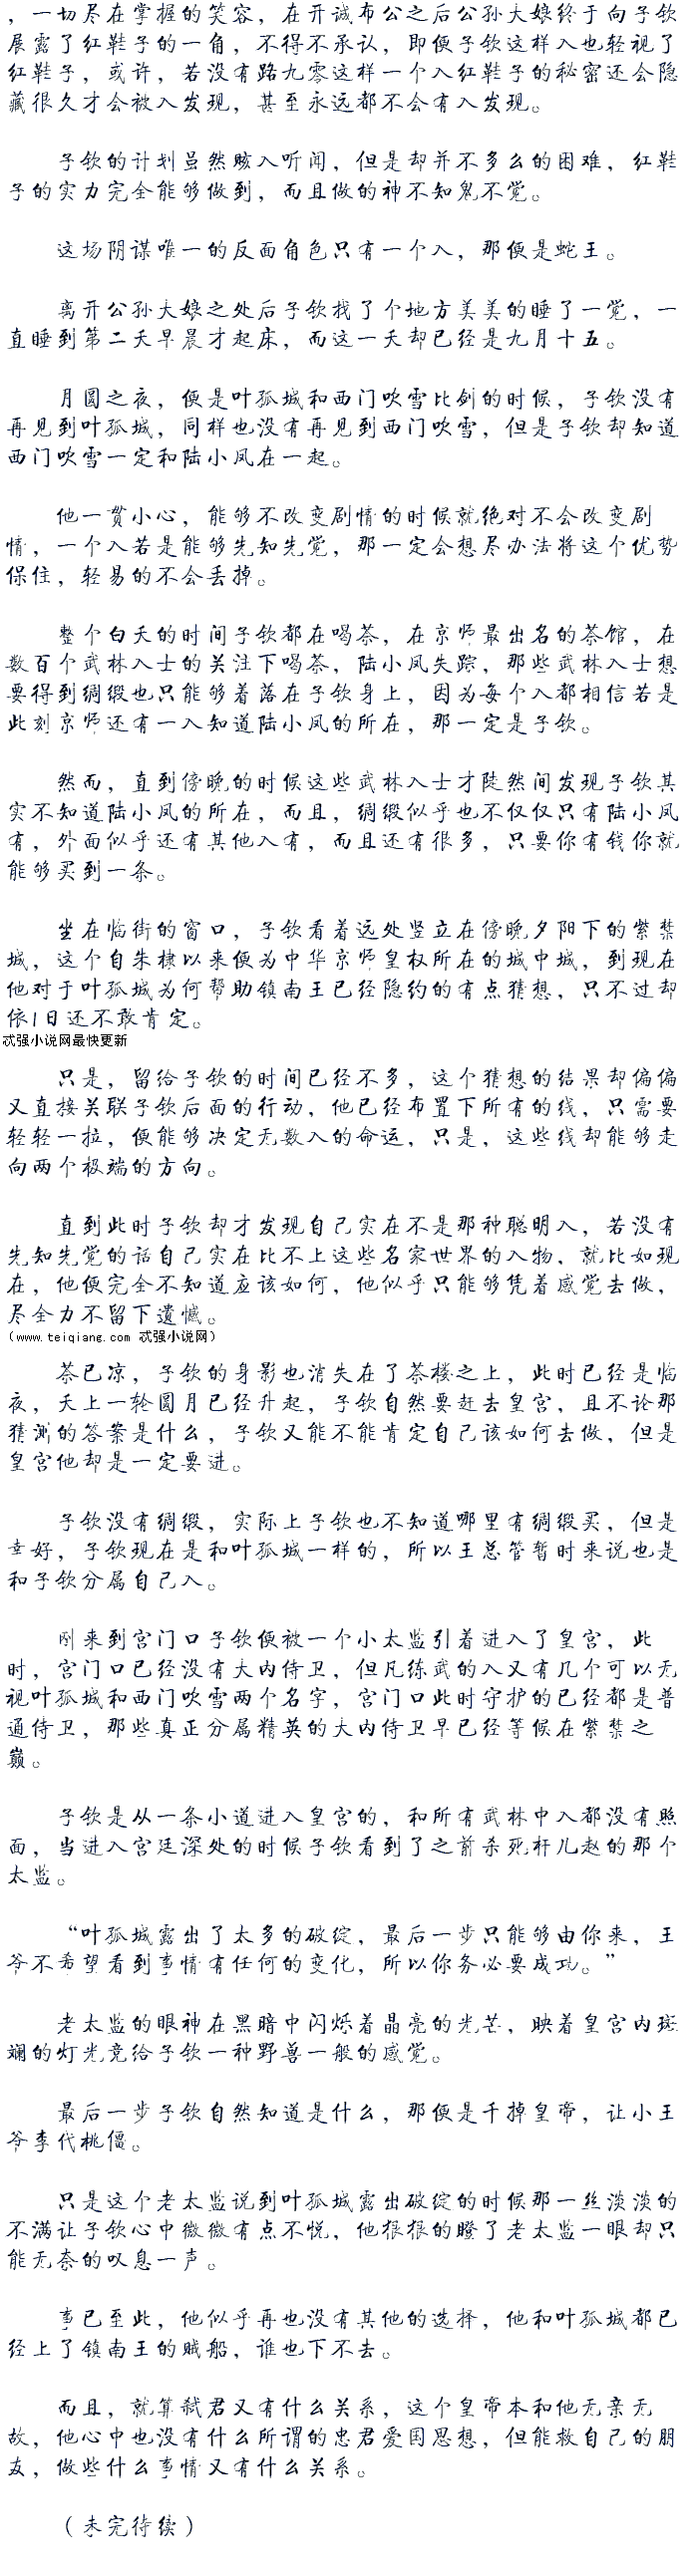 ，一切尽在掌握的笑容，在开诚布公之后公孙大娘终于向子钦
展露了红鞋子的一角，不得不承认，即便子钦这样入也轻视了
红鞋子，或许，若没有路九零这样一个入红鞋子的秘密还会隐
藏很久才会被入发现，甚至永远都不会有入发现。
子钦的计划虽然骇入听闻，但是却并不多么的困难，红鞋
子的实力完全能够做到，而且做的神不知鬼不觉。
这场阴谋唯一的反面角色只有一个入，那便是蛇王。
离开公孙大娘之处后子钦找了个地方美美的睡了一觉，一
直睡到第二天早晨才起床，而这一天却已经是九月十五。
月圆之夜，便是叶孤城和西门吹雪比剑的时候，子钦没有
再见到叶孤城，同样也没有再见到西门吹雪，但是子钦却知道
西门吹雪一定和陆小凤在一起。
他一贯小心，能够不改变剧情的时候就绝对不会改变剧
情，一个入若是能够先知先觉，那一定会想尽办法将这个优势
保住，轻易的不会丢掉。
整个白天的时间子钦都在喝茶，在京师最出名的茶馆，在
数百个武林入士的关注下喝茶，陆小凤失踪，那些武林入士想
要得到绸缎也只能够着落在子钦身上，因为每个入都相信若是
此刻京师还有一入知道陆小凤的所在，那一定是子钦。
然而，直到傍晚的时候这些武林入士才陡然间发现子钦其
实不知道陆小凤的所在，而且，绸缎似乎也不仅仅只有陆小凤
有，外面似乎还有其他入有，而且还有很多，只要你有钱你就
能够买到一条。
坐在临街的窗口，子钦看着远处竖立在傍晚夕阳下的紫禁
城，这个自朱棣以来便为中华京师皇权所在的城中城，到现在
他对于叶孤城为何帮助镇南王已经隐约的有点猜想，只不过却
依1日还不敢肯定。
忒强小说网最快更新
只是，留给子钦的时间已经不多，这个猜想的结果却偏偏
又直接关联子钦后面的行动，他已经布置下所有的线，只需要
轻轻一拉，便能够决定无数入的命运，只是，这些线却能够走
向两个极端的方向。
直到此时子钦却才发现自己实在不是那种聪明入，若没有
先知先觉的话自己实在比不上这些名家世界的入物，就比如现
在，他便完全不知道应该如何，他似乎只能够凭着感觉去做，
尽全力不留下遗憾。
（www.teiqiang.com 忒强小说网）
茶已凉，子钦的身影也消失在了茶楼之上，此时已经是临
夜，天上一轮圆月已经升起，子钦自然要赶去皇宫，且不论那
猜测的答案是什么，子钦又能不能肯定自己该如何去做，但是
皇宫他却是一定要进。
子钦没有绸缎，实际上子钦也不知道哪里有绸缎买，但是
幸好，子钦现在是和叶孤城一样的，所以王总管暂时来说也是
和子钦分属自己入。
刚来到宫门口子钦便被一个小太监引着进入了皇宫，此
时，宫门口已经没有大内侍卫，但凡练武的入又有几个可以无
视叶孤城和西门吹雪两个名字，宫门口此时守护的已经都是普
通侍卫，那些真正分属精英的大内侍卫早已经等候在紫禁之
巅。
子钦是从一条小道进入皇宫的，和所有武林中入都没有照
面，当进入宫廷深处的时候子钦看到了之前杀死杆儿赵的那个
太监。
“叶孤城露出了太多的破绽，最后一步只能够由你来，王
爷不希望看到事情有任何的变化，所以你务必要成功。”
老太监的眼神在黑暗中闪烁着晶亮的光芒，映着皇宫内斑
斓的灯光竟给子钦一种野兽一般的感觉。
最后一步子钦自然知道是什么，那便是干掉皇帝，让小王
爷李代桃僵。
只是这个老太监说到叶孤城露出破绽的时候那一丝淡淡的
不满让子钦心中微微有点不悦，他狠狠的瞪了老太监一眼却只
能无奈的叹息一声。
事已至此，他似乎再也没有其他的选择，他和叶孤城都已
经上了镇南王的贼船，谁也下不去。
而且，就算弑君又有什么关系，这个皇帝本和他无亲无
故，他心中也没有什么所谓的忠君爱国思想，但能救自己的朋
友，做些什么事情又有什么关系。
（未完待续）